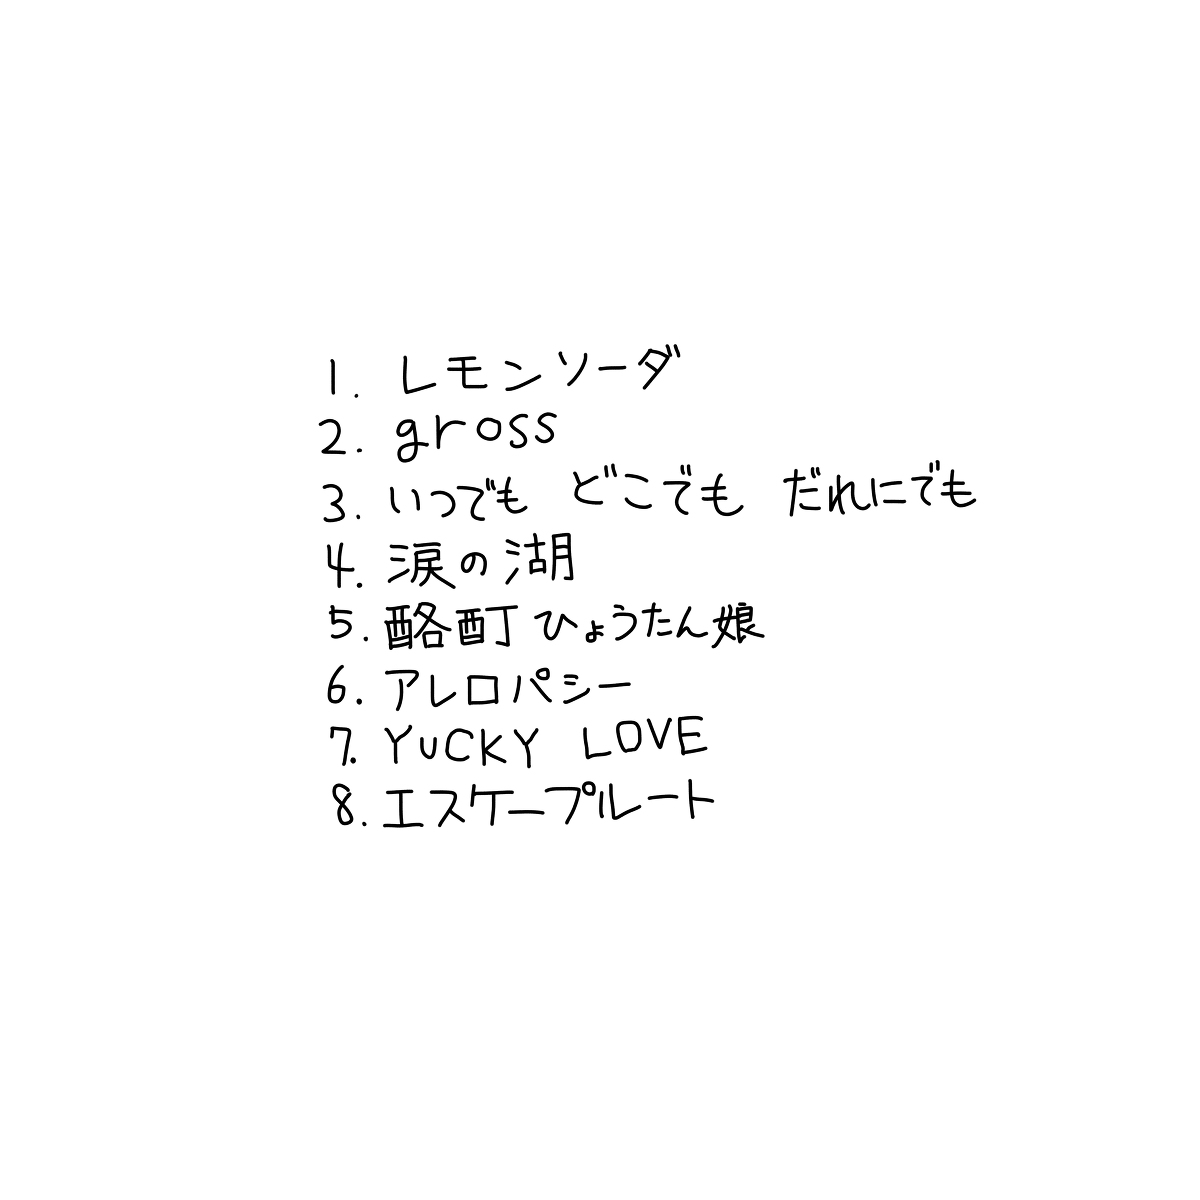 1. レモンソーダ
2. gross
3. いつでも どこでも だれにでも
4. 涙の湖
5. 酩酊ひょうたん娘
6. アレロパシー
7. YUCKY LOVE
8. エスケープルート